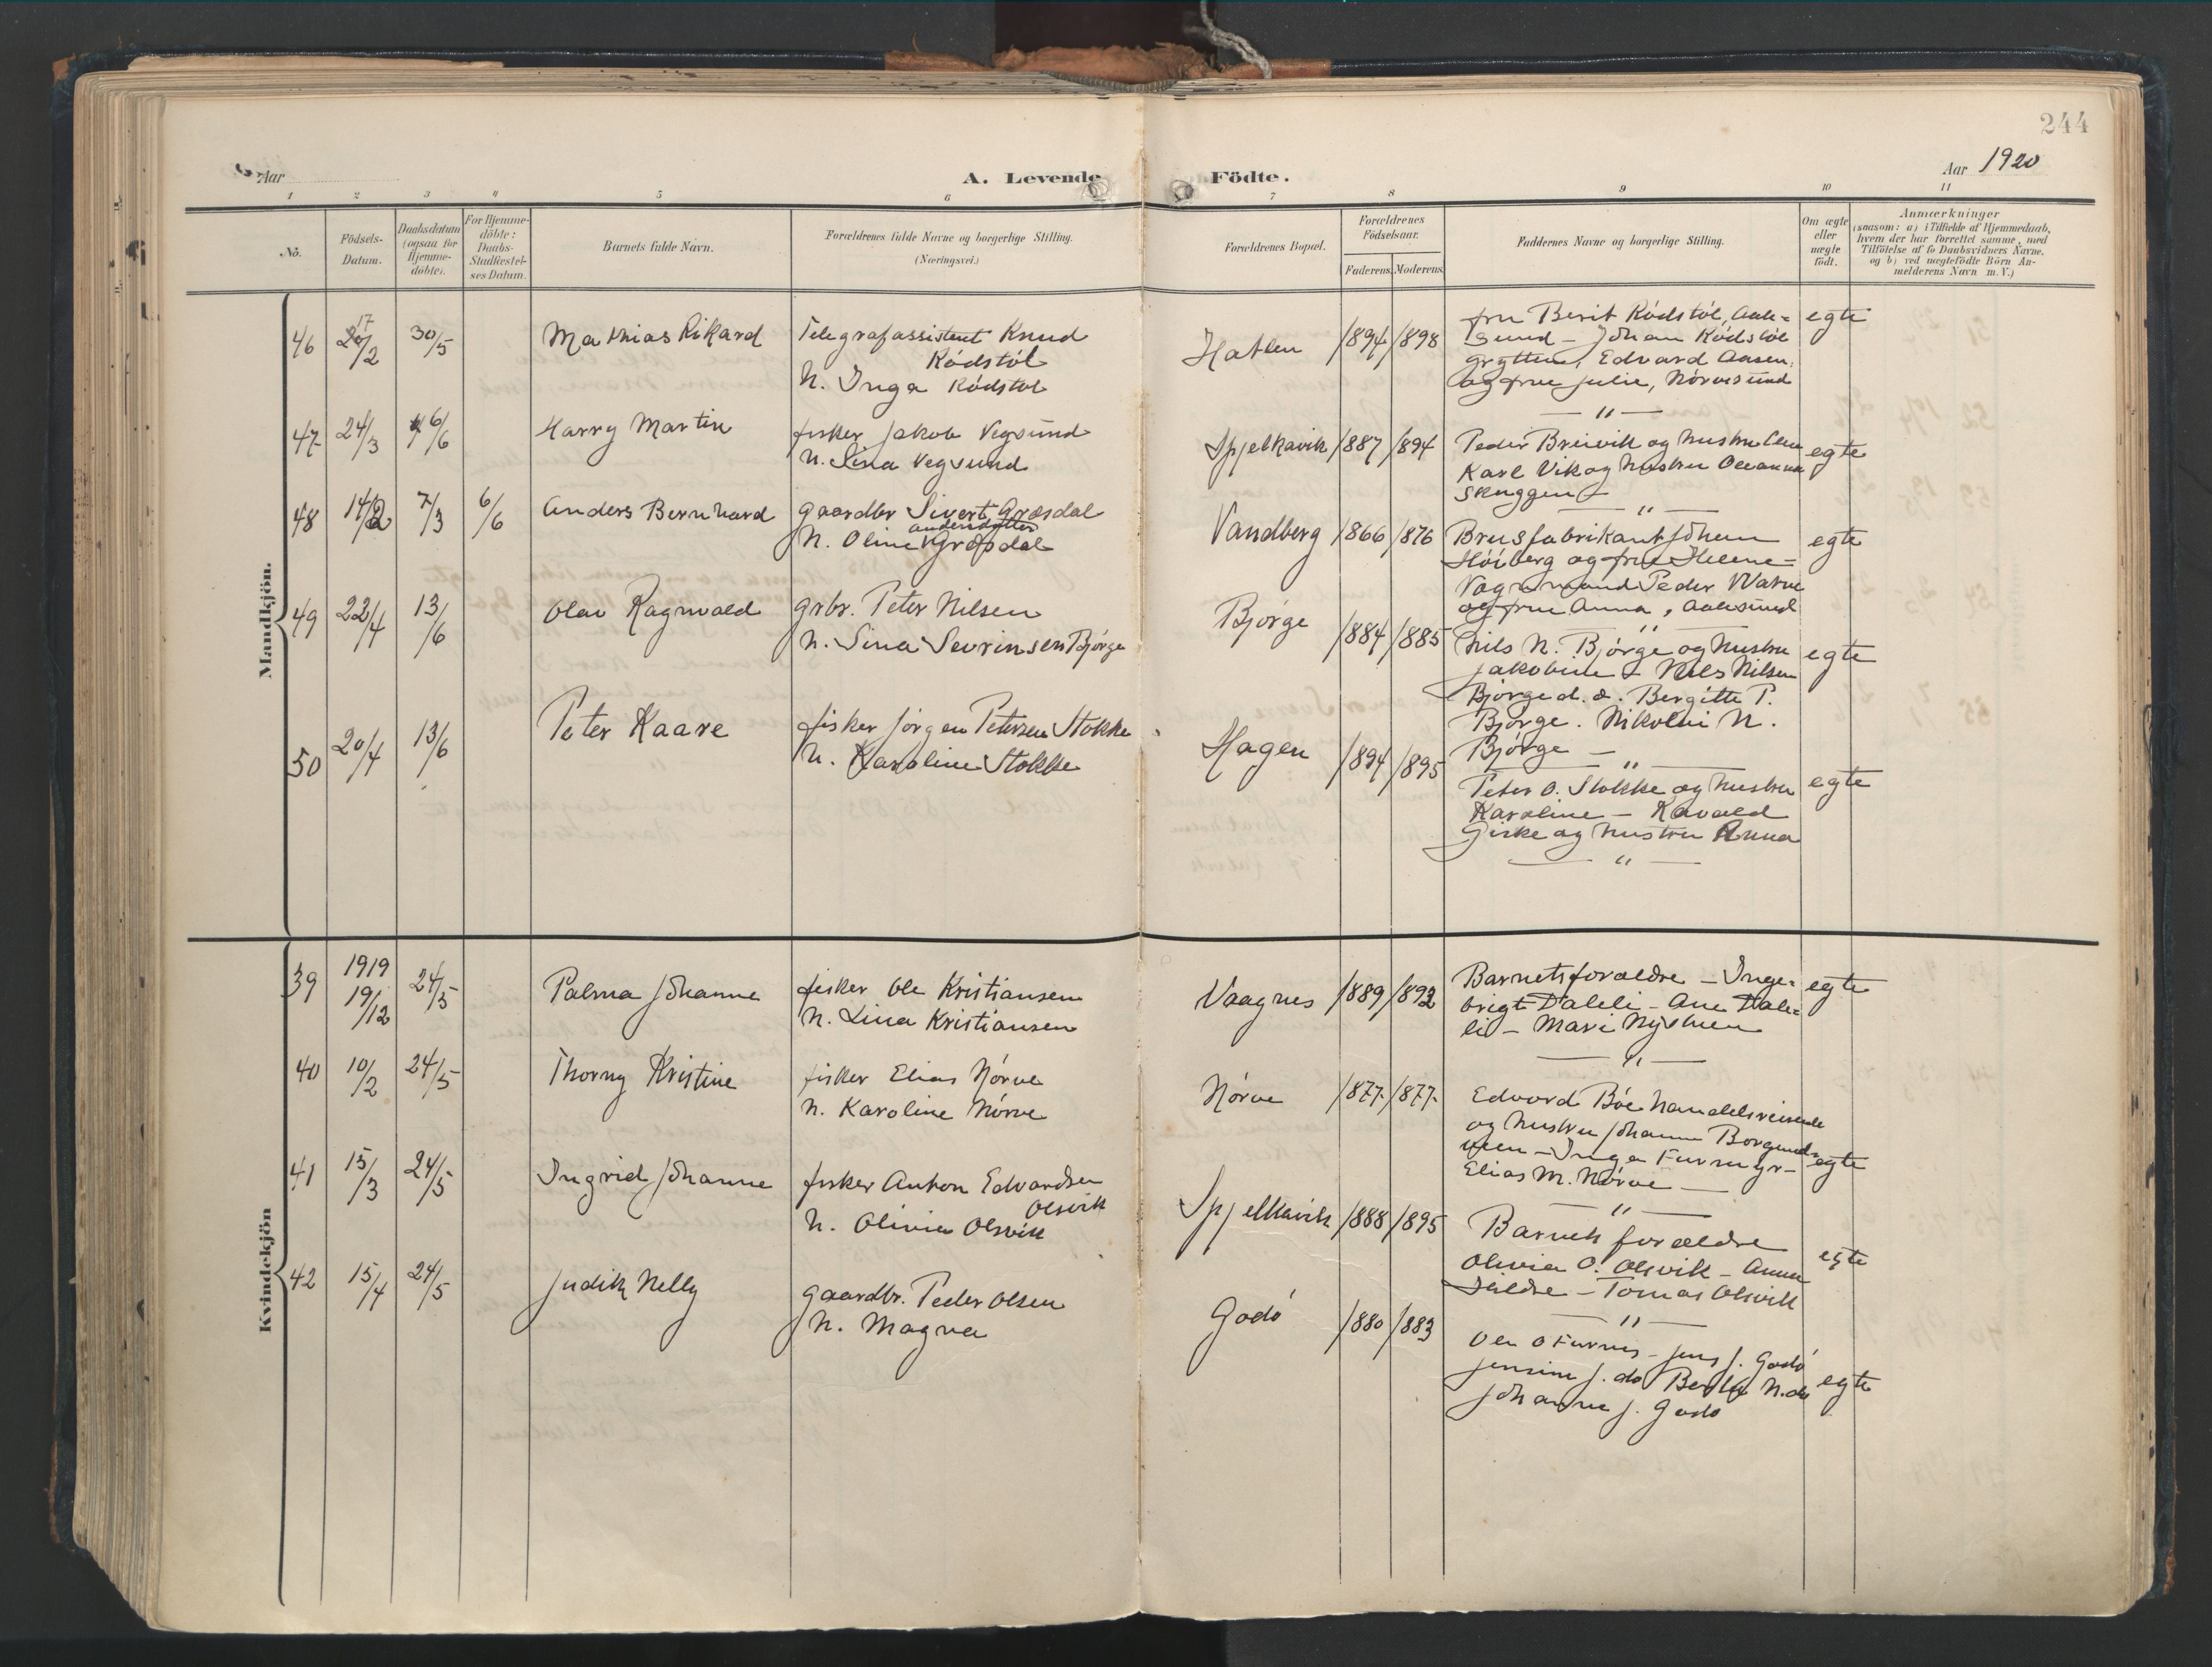 244
Aar
A. Levende Födte.
Aar 1920
1 2 3 4 5 6 7 8 9 10 11
No.
Födsels-
Datum.
Daabsdatum
(ogsaa for
Hjemme-
döbte).
For Hjemme-
döbte:
Daabs-
Stadfæstel-
ses Datum.
Barnets fulde Navn.
Forældrenes fulde Navne og borgerlige Stilling.
(Næringsvei.)
Forældrenes Bopæl.
Forældrenes
Födselsaar.
Faderens. Moderens.
Faddernes Navne og borgerlige Stilling.
Om ægte
eller
uægte
født.
Anmærkninger
(saasom: a) i Tilfælde af Hjemmedaab,
hvem der har forrettet samme, med
Tilföielse af to Daabsvidners Navne.
og b) ved uægtefödte Börn An-
melderens Navn m. V.)
Mandkjön.
46 17/2 30/5 Mathias Rikard
Telegrafassistent Knud
Rödstöl
h. Inga Rödstöl
Hatlen 1894 1898
fru Berit Rödstöl, Aale-
sund - Johan Rödstöl
Grytten, Edvard Aasen,
og frue Julie, Nörvesund
— " —
egte
47 24/3 6/6 Harry Martin
fisker Jakob Vegsund
h. Sina Vegsund
Spjelkavik 1887 1894
Peder Breivik og hustru
Karl Vik og hustru Oleanna
Skuggen -
— " —
egte
48 14/2 7/3 6/6 Anders Bernhard
gaardbr Sivert Græsdal
andersdatter
h. Oline Græsdal
Vandberg 1866 1876
Brusfabrikant Johan
Höiberg og frue Helene -
Vognmand Peder Warne
og frue Anna, Aalesund
— " —
egte
49 22/4 13/6 Olav Ragnvald
grbr. Peter Nilsen
h. Sina Sevrinsen Bjørge
Bjørge 1884 1885
Nils N. Bjørge og hustru
Jakobine - Nils Nilsen
Bjørge d. æ. Bergitte P.
Bjørge. Nikolai N.
Bjørge —
— " —
egte
50 20/4 13/6 Peter Kaare
fisker Jörgen Petersen Stokke
h. Karoline Stokke
Hagen 1894 1895
Peter O. Stokke og hustru
Karoline - Kavald
Giske og hustru Anna
— " —
egte
Kvindekjön
39 1919
19/12 24/5 Palma Johanne
fisker Ole Kristiansen
h. Lina Kristiansen
Vaagnes 1889 1892
Barnets forældre - Inge-
brigt Daleli - Ane Dale-
li - Mari
— " —
egte
40 10/2 24/5 Thorny Kristine
fisker Elias Nörve
h. Karoline Nörve
Nörve 1877 1877
Edvard Böe handelsreisende
og hustru Johanne Borgund-
veen - Inga Furmyr -
Elias M. Nörve —
— " —
egte
41 15/3 24/5 Ingrid Johanne
fisker Anton Edvardsen
Olsvik
h. Olivia Olsvik
Spjelkavik 1888 1895
Barnets forældre
Olivia O. Olsvik - Anna
- Tomas Olsvik
— " —
egte
42 15/4 24/5 Judith Nelly
gaardbr. Peder Olsen
h. Magna
Godö 1880 1883
Ole O Furnes - Jens J. Godö
Jensine J. do Berta N. do
Johanne J. Godö
egte